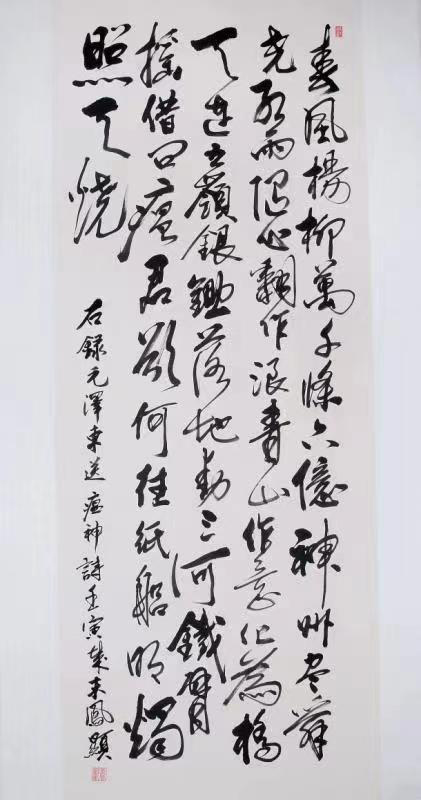 春風楊柳萬千條六億神州盡舜
堯紅雨隨心翻作浪青山作意化為橋
天連五嶺銀鋤落地動三河鐵臂
搖借問瘟君欲何往紙船明燭
照天燒
右錄毛澤東送瘟神詩壬寅鳳顯